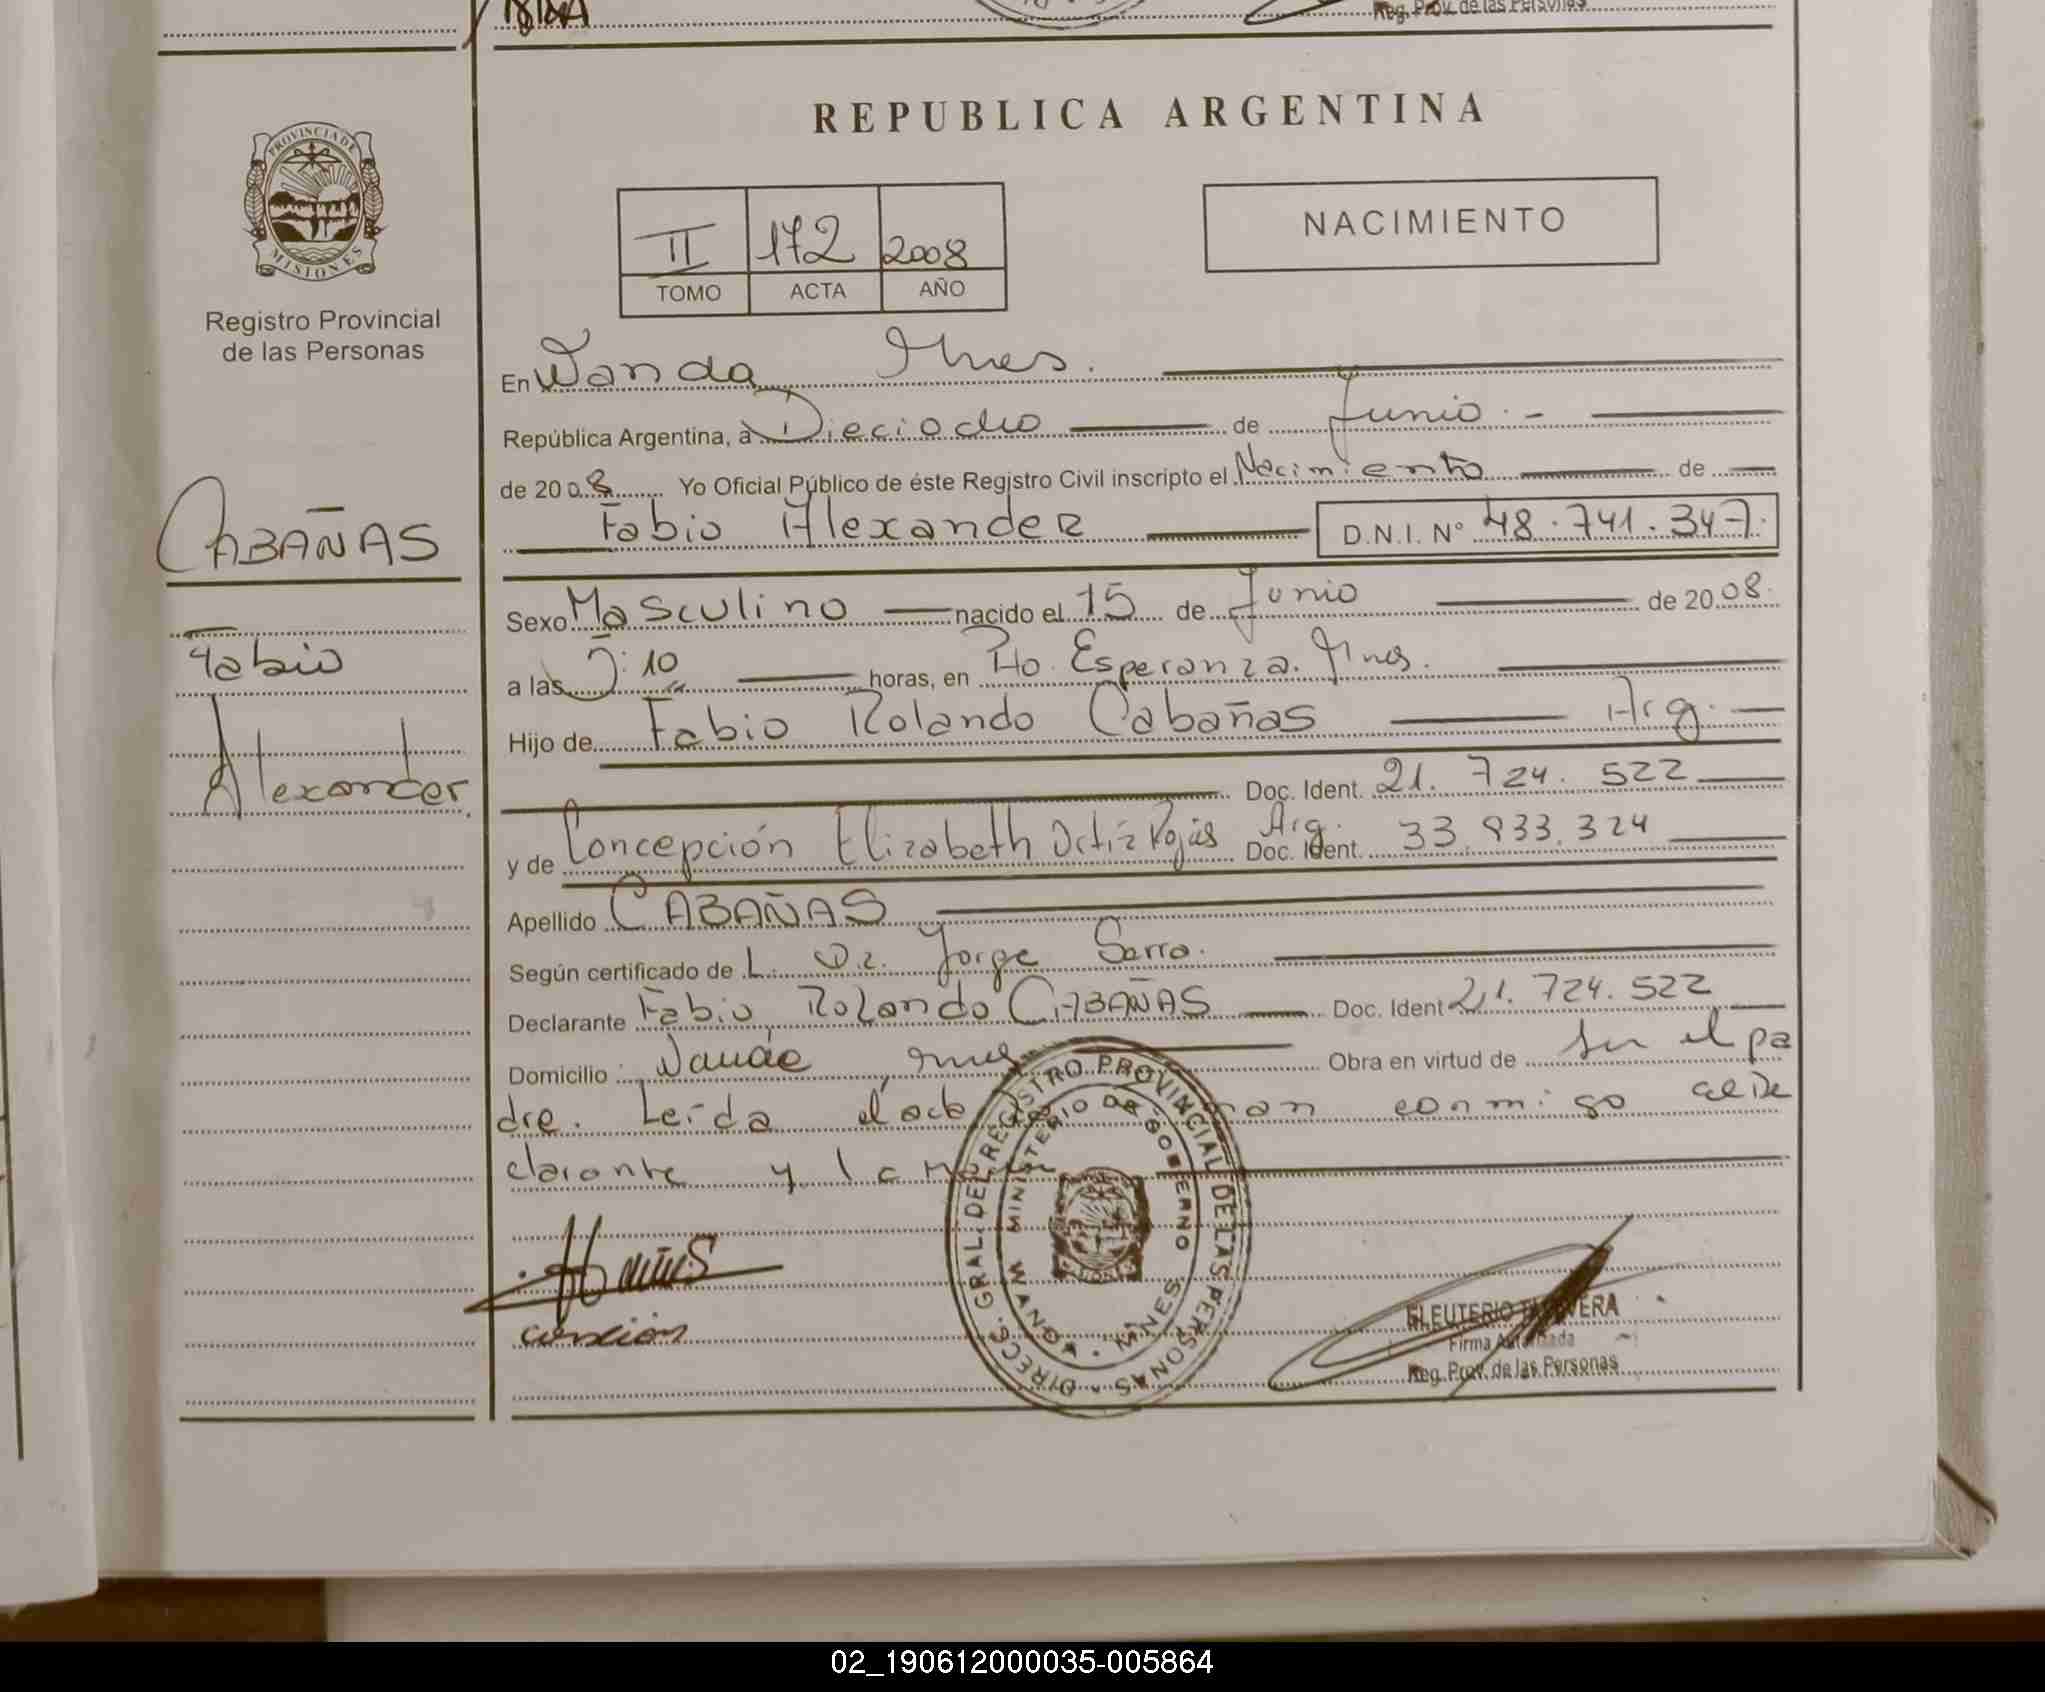 Reg. Prov. de las Personas
REPUBLICA ARGENTINA
PROVINCIA DE
MISIONES
Registro Provincial
de las Personas
II 172 2008
TOMO ACTA AÑO
NACIMIENTO
En Wanda Mnes.
República Argentina, a Dieciocho de Junio.-
de 2008 Yo Oficial Público de éste Registro Civil inscripto el Nacimiento de
Fabio Alexander D.N.I. Nº 48.741.347.
CABAÑAS
Fabio
Alexander
Sexo Masculino nacido el 15 de Junio de 2008.
a las :10 horas, en Pto. Esperanza. Mnes.
Hijo de Fabio Rolando Cabañas Arg.
Doc. Ident. 21.724.522
y de Concepción Elizabeth Ortíz Rojas Arg. Doc. Ident. 33.933.324
Apellido CABAÑAS
Según certificado de L. Dr. Jorge Serra.
Declarante Fabio Rolando CABAÑAS Doc. Ident 21.724.522
Domicilio Wanda, mnes Obra en virtud de ser el pa
dre. Leída el acta conmigo el de
clarante y la
DIRECC. GRAL. DEL REGISTRO PROVINCIAL DE LAS PERSONAS
MINISTERIO DE GOBIERNO
WANDA - MNES
ELEUTERIO TALAVERA
Firma Autorizada
Reg. Prov. de las Personas
02_190612000035-005864